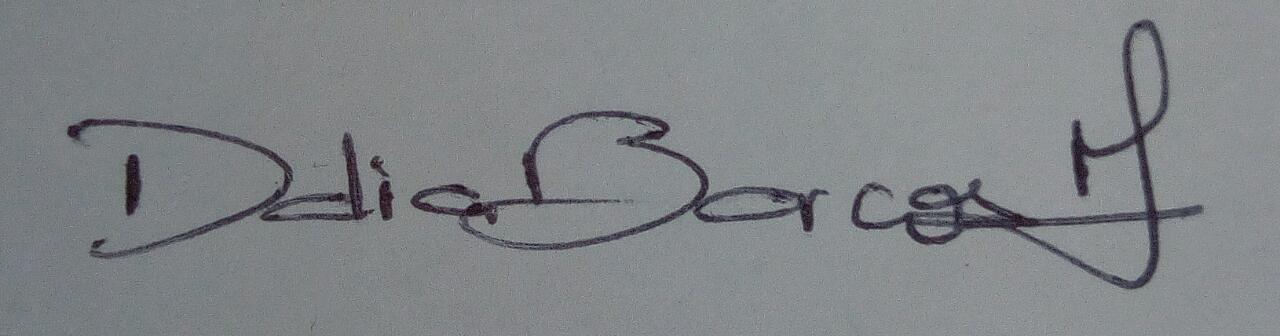 Dalia Barcos M